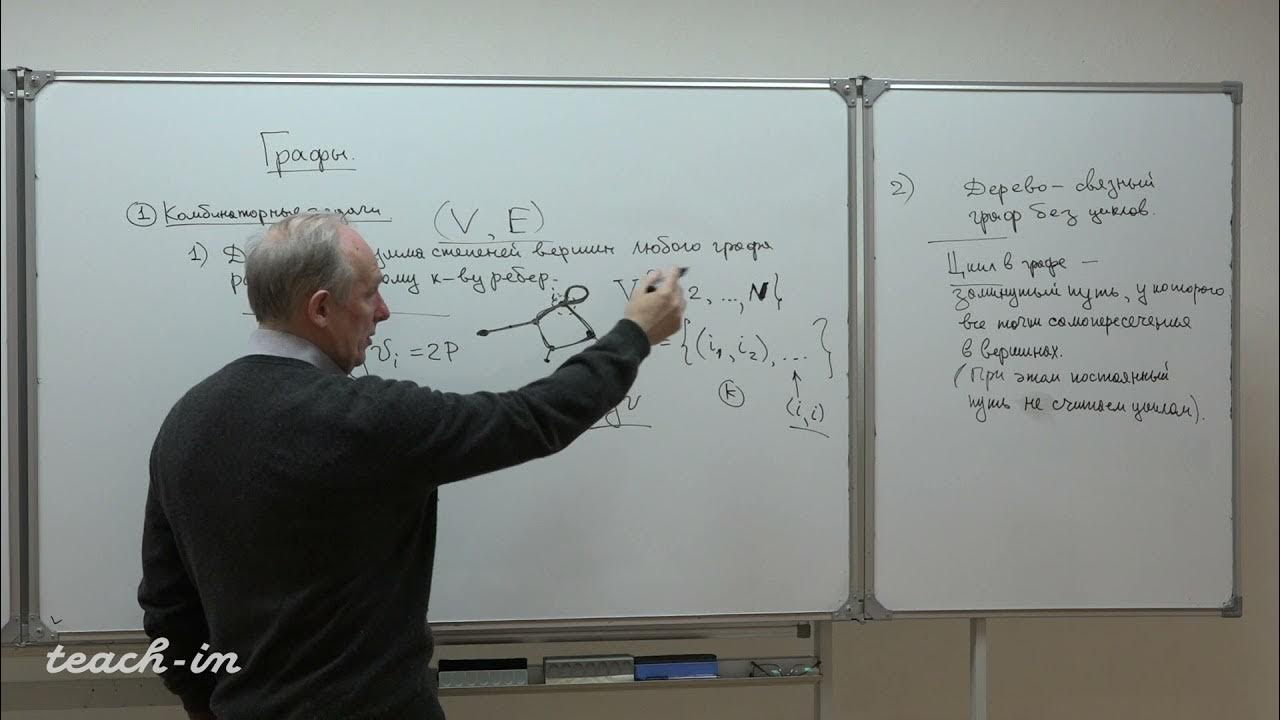 Графы.
① Комбинаторные задачи
(V, E)
1) умма степеней вершин любого графа
ому к-ву ребер.
V 2, ..., N}
= {(i₁, i₂), ... }
vᵢ = 2P
(k)
(i, i)
2) Дерево – связный
граф без циклов.
Цикл в графе –
замкнутый путь, у которого
все точки самопересечения
в вершинах.
(При этом постоянный
путь не считаем циклом).
teach-in